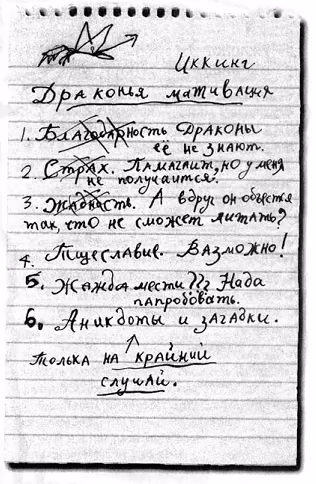 Иккинг
Драконья мативация
1. Благодарность Драконы
её не знают.
2. Страх. Памагаит, но у меня
не получаится.
3. Жадность. А вдруг он объестся
так, что не сможет литать?
4. Тщеславие. Возможно!
5. Жажда мести??? Нада
папробовать.
6. Аникдоты и загадки.
Толька на крайний
случай.